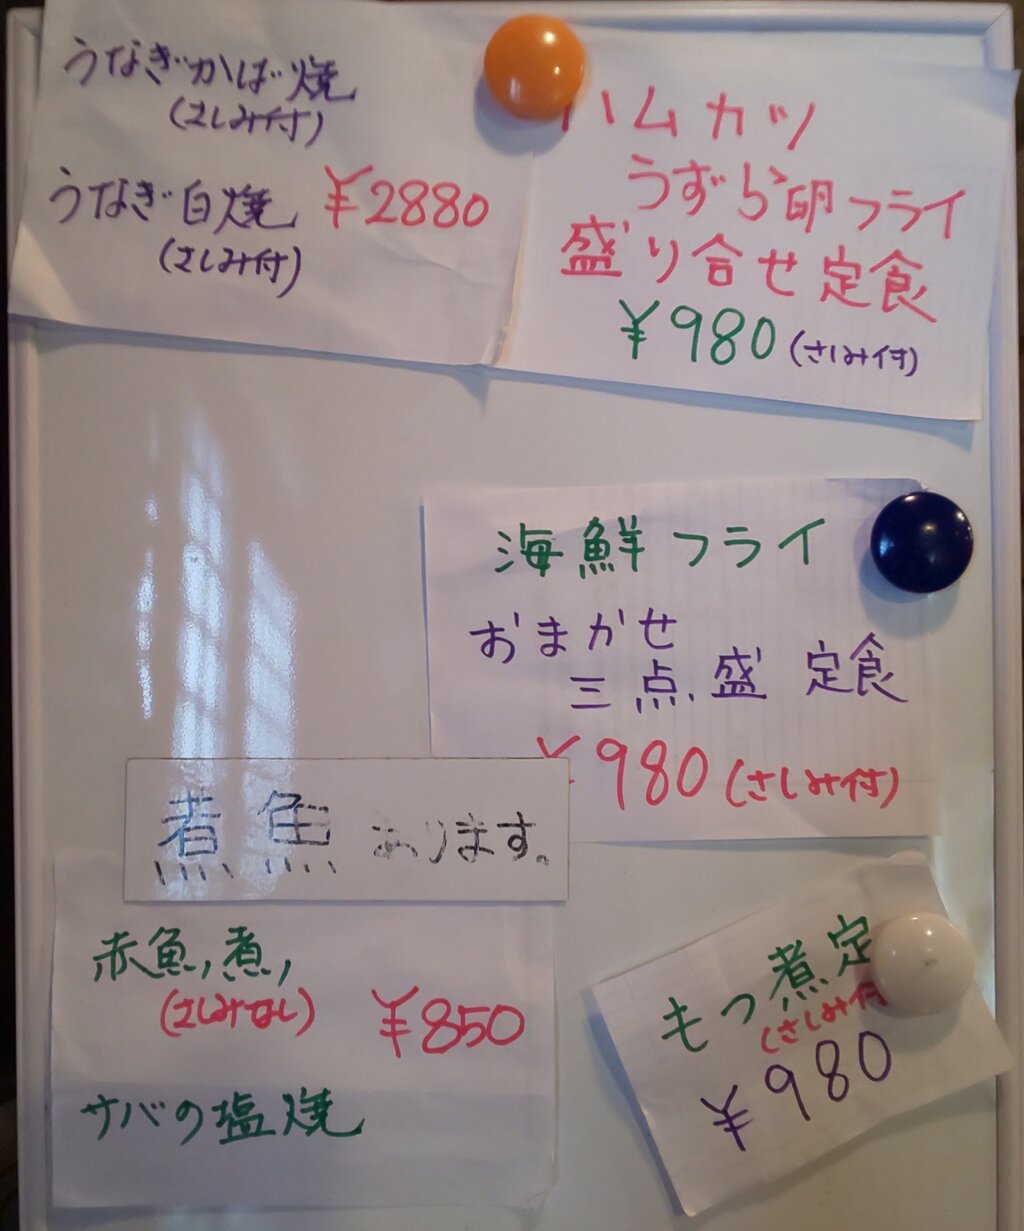 うなぎかば焼
(さしみ付)
うなぎ白焼 ¥2880
(さしみ付)
ハムカツ
うずら卵フライ
盛り合せ定食
¥980 (さしみ付)
海鮮フライ
おまかせ
三点盛 定食
¥980 (さしみ付)
煮魚あります。
赤魚煮
(さしみなし)
¥850
サバの塩焼
もつ煮定
(さしみ付
¥980